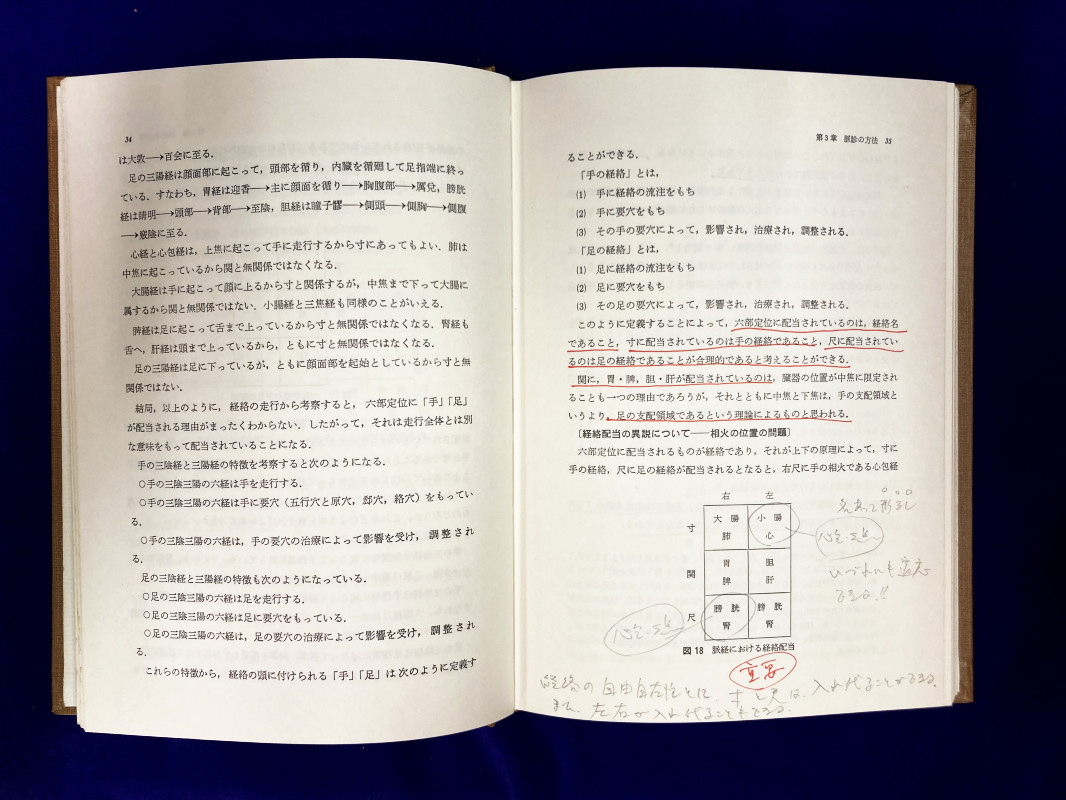 34
は大敦→百会に至る.
足の三陽経は顔面部に起こって，頭部を循り，内臓を循廻して足指端に終っ
ている．すなわち，胃経は迎香→主に顔面を循り→胸腹部→厲兌，膀胱
経は睛明→頭部→背部→至陰，胆経は瞳子髎→側頭→側胸→側腹
→竅陰に至る.
心経と心包経は，上焦に起こって手に走行するから寸にあってもよい．肺は
中焦に起こっているから関と無関係ではなくなる.
大腸経は手に起こって顔に上るから寸と関係するが，中焦まで下って大腸に
属するから関と無関係ではない．小腸経と三焦経も同様のことがいえる.
脾経は足に起こって舌まで上っているから寸と無関係ではなくなる．腎経も
舌へ，肝経は頭まで上っているから，ともに寸と無関係ではなくなる.
足の三陽経は足に下っているが，ともに顔面部を起始としているから寸と無
関係ではない.
結局，以上のように，経絡の走行から考察すると，六部定位に「手」「足」
が配当される理由がまったくわからない．したがって，それは走行全体とは別
な意味をもって配当されていることになる.
手の三陰経と三陽経の特徴を考察すると次のようになる.
○手の三陰三陽の六経は手を走行する.
○手の三陰三陽の六経は手に要穴（五行穴と原穴，郄穴，絡穴）をもってい
る.
○手の三陰三陽の六経は，手の要穴の治療によって影響を受け，調整され
る.
足の三陰経と三陽経の特徴も次のようになっている.
○足の三陰三陽の六経は足を走行する.
○足の三陰三陽の六経は足に要穴をもっている.
○足の三陰三陽の六経は，足の要穴の治療によって影響を受け，調整され
る.
これらの特徴から，経絡の頭に付けられる「手」「足」は次のように定義す
第3章 脈診の方法 35
ることができる.
「手の経絡」とは，
(1) 手に経絡の流注をもち
(2) 手に要穴をもち
(3) その手の要穴によって，影響され，治療され，調整される.
「足の経絡」とは，
(1) 足に経絡の流注をもち
(2) 足に要穴をもち
(3) その足の要穴によって，影響され，治療され，調整される.
このように定義することによって，六部定位に配当されているのは，経絡名
であること，寸に配当されているのは手の経絡であること，尺に配当されてい
るのは足の経絡であることが合理的であると考えることができる.
関に，胃・脾，胆・肝が配当されているのは，臓器の位置が中焦に限定され
ることも一つの理由であろうが，それとともに中焦と下焦は，手の支配領域と
いうより，足の支配領域であるという理論によるものと思われる.
〔経絡配当の異説について——相火の位置の問題〕
六部定位に配当されるものが経絡であり，それが上下の原理によって，寸に
手の経絡，尺に足の経絡が配当されるとなると，右尺に手の相火である心包経
右 左
寸 大腸 小腸
肺 心
関 胃 胆
脾 肝
尺 膀胱 膀胱
腎 腎
図18 脈経における経絡配当
名あって形なし
心包・三焦
いづれにも
できる!!
心包・三焦
重要
経絡の自由自在性とは、寸と尺は、入れ代ることができる.
また、左右が入れ代ることもできる.